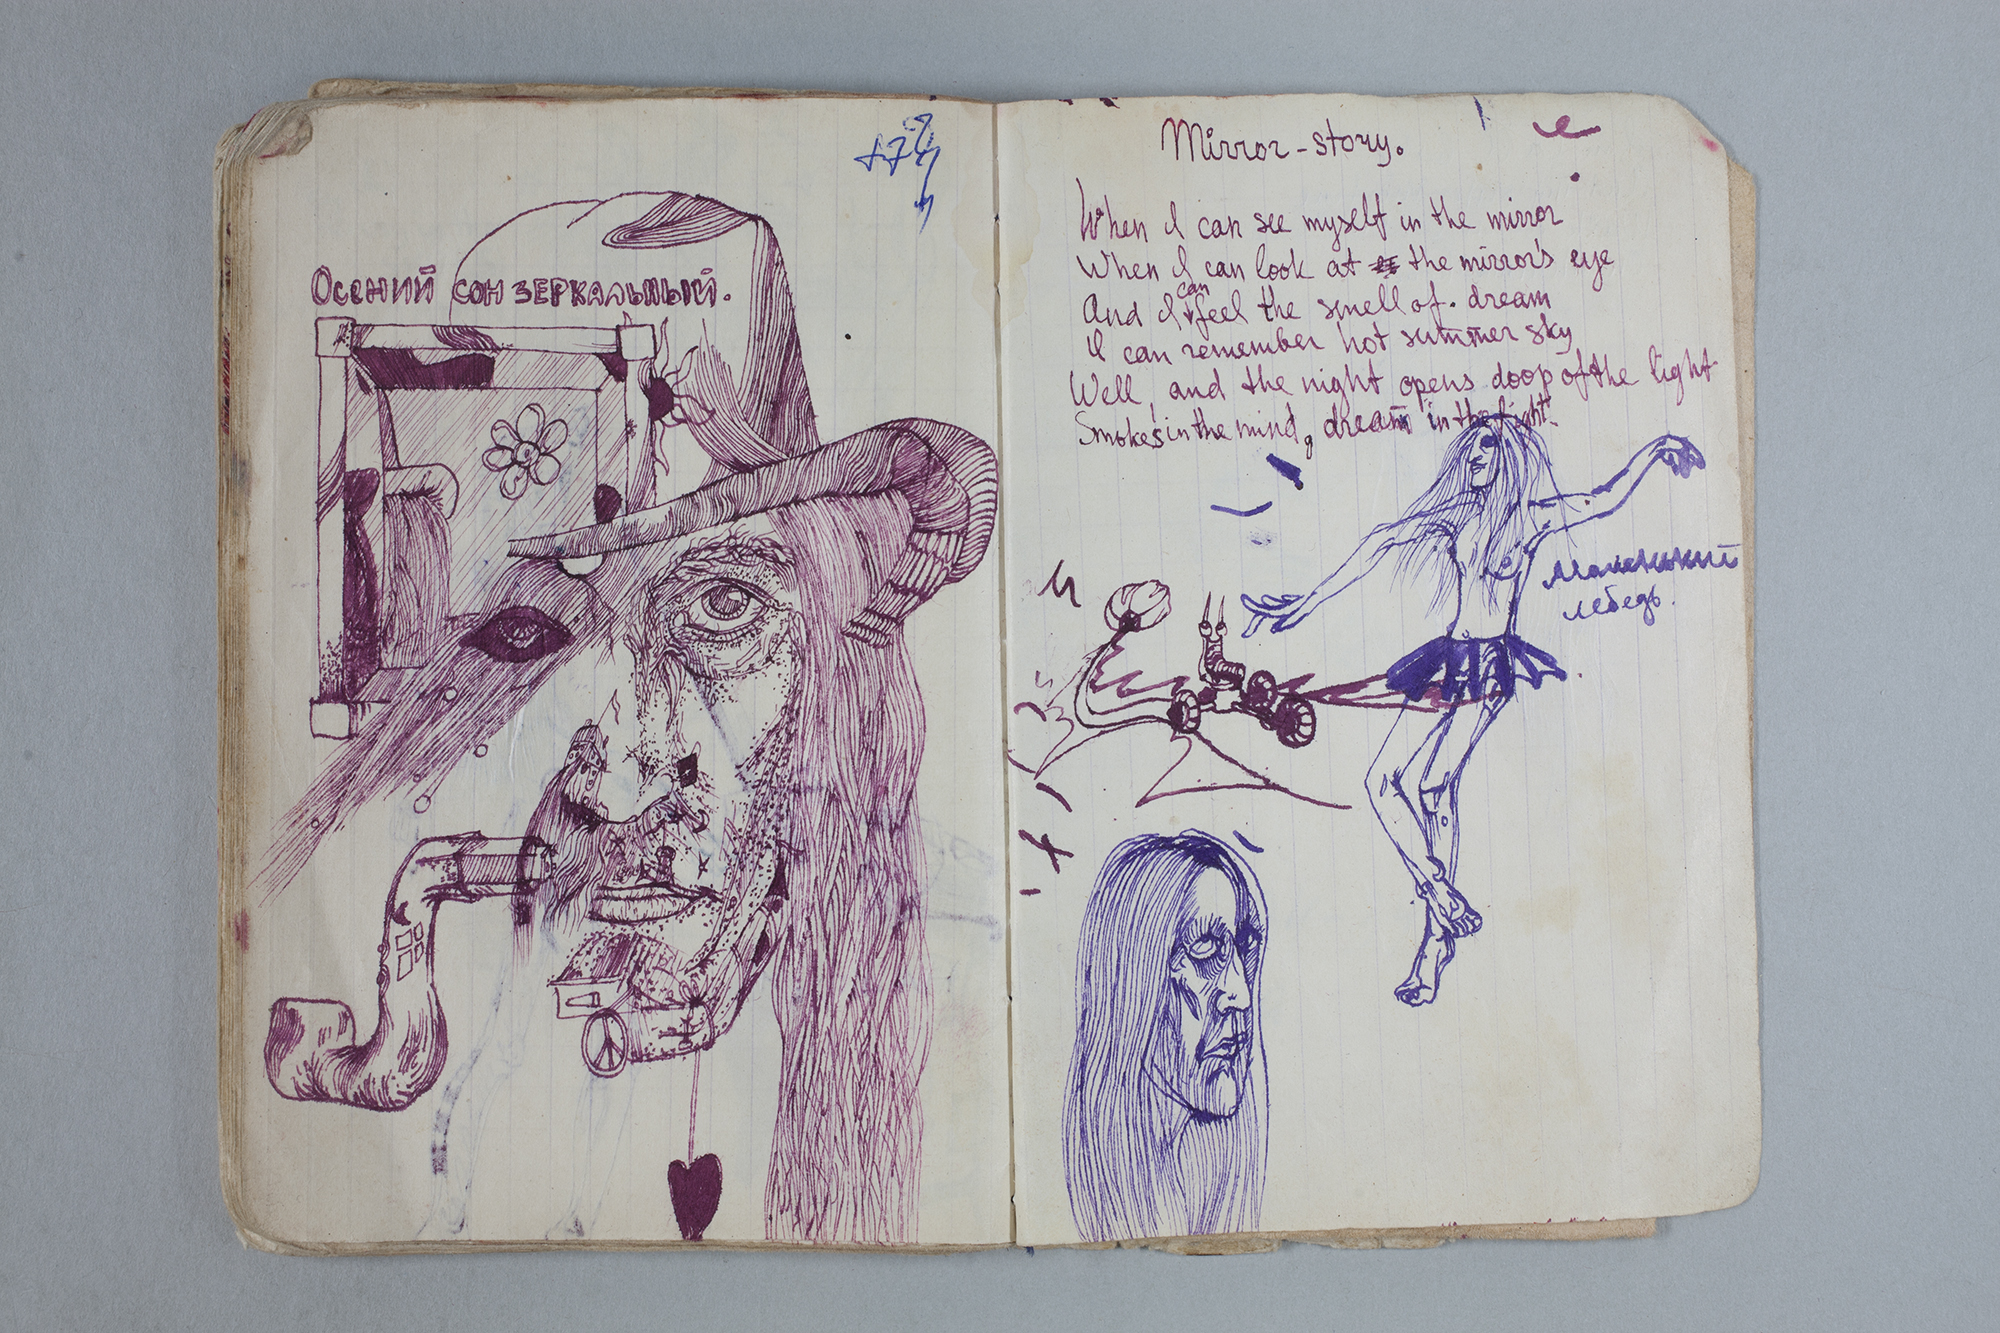 Осений сон зеркальный.
Mirror-story.
When I can see myself in the mirror
When I can look at the mirror's eye
And I can feel the smell of. dream
I can remember hot summer sky
Well, and the night opens doop of the light
Smokes in the mind, dream in the light.
Маленький
лебедь.